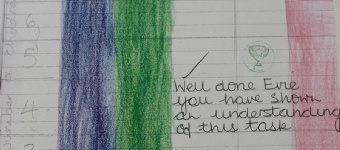 6
5
Well done Evie
you have shown
an understanding
of this task
4
3